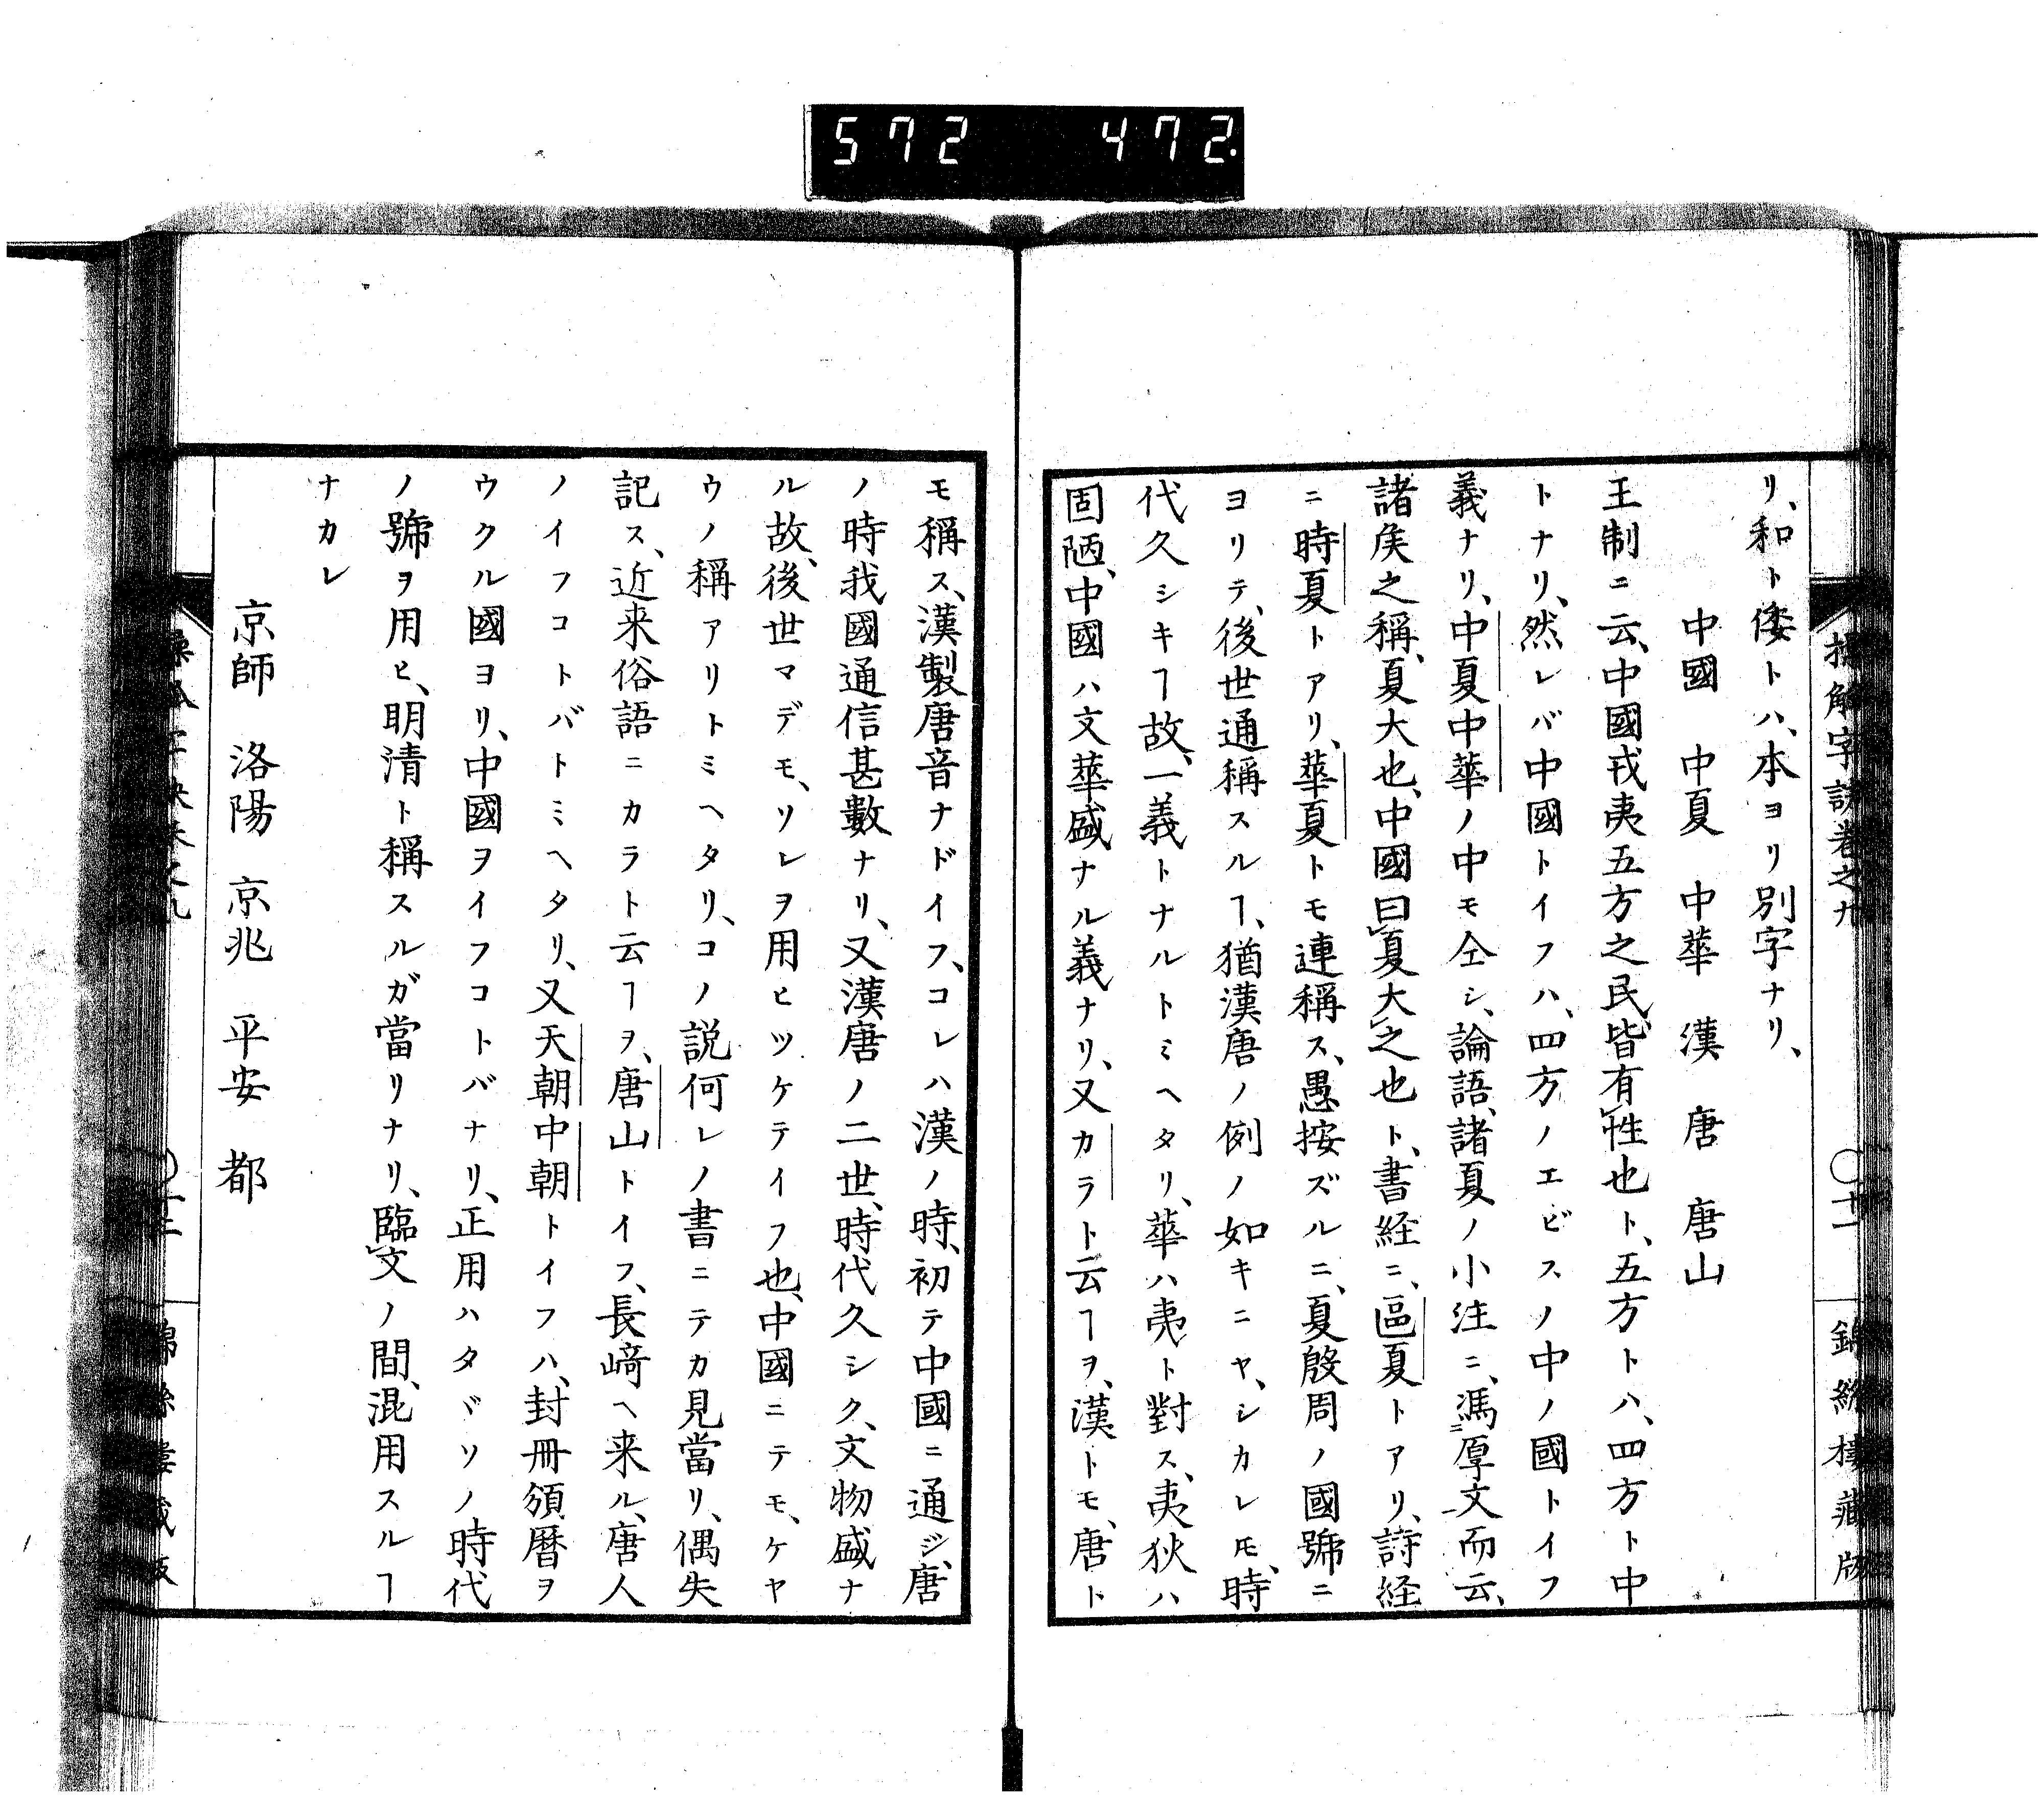 572 472.
リ、和ト倭トハ、本ヨリ別字ナリ、
中國 中夏 中華 漢 唐 唐山
王制ニ云、中國戎夷五方之民、皆有性也ト、五方トハ、四方ト中
トナリ、然レバ中國トイフハ、四方ノエビスノ中ノ國トイフ
義ナリ、中夏中華ノ中モ仝シ、論語、諸夏ノ小注ニ、馮厚文而云、
諸矦之稱、夏大也、中國曰夏大之也ト、書経ニ、區夏トアリ、詩経
ニ時夏トアリ、華夏トモ連稱ス、愚按ズルニ、夏殷周ノ國號ニ
ヨリテ、後世通稱スルヿ、猶漢唐ノ例ノ如キニヤ、シカレ𪜈、時
代久シキヿ故、一義トナルトミヘタリ、華ハ夷ト對ス、夷狄ハ
固陋、中國ハ文華盛ナル義ナリ、又カラト云ヿヲ、漢トモ、唐ト
解字訣巻之九
〇十一
錦絲樓藏版
モ稱ス、漢製唐音ナドイフ、コレハ漢ノ時、初テ中國ニ通ジ、唐
ノ時我國通信甚數ナリ、又漢唐ノ二世、時代久シク、文物盛ナ
ル故、後世マデモ、ソレヲ用ヒツケテイフ也、中國ニテモ、ケヤ
ウノ稱アリトミヘタリ、コノ説何レノ書ニテカ見當リ、偶失
記ス、近来俗語ニカラト云ヿヲ、唐山トイフ、長崎ヘ来ル、唐人
ノイフコトバトミヘタリ、又天朝中朝トイフハ、封冊頒暦ヲ
ウクル國ヨリ、中國ヲイフコトバナリ、正用ハタヾソノ時代
ノ號ヲ用ヒ、明清ト稱スルガ當リナリ、臨文ノ間、混用スルヿ
ナカレ
京師 洛陽 京兆 平安 都